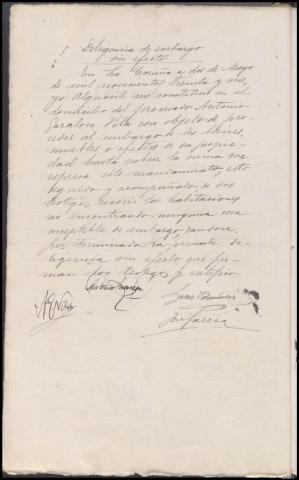 Diligencia de embargo
sin efecto
En La Coruña a dos de Mayo
de mil novecientos treinta y seis,
yo Alguacil me constituí en el
domicilio del procesado Antonio
con objeto de pro-
ceder al embargo de los bienes,
muebles o efectos de su propie-
dad hasta cubrir la suma que
expresa este mandamiento, esto
seguido y acompañado de dos
testigos, recorrí las habitaciones
no encontrando ninguna cosa
susceptible de embargo dandose
por terminada la presente di-
ligencia sin efecto que fir-
man los testigos y certifico
García